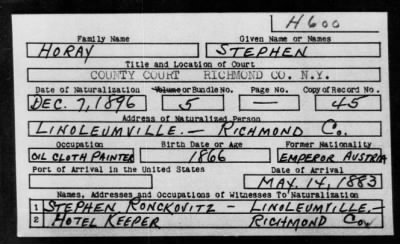 H600
Family Name Given Name or Names
HORAY STEPHEN
Title and Location of Court
COUNTY COURT RICHMOND CO. N.Y.
Date of Naturalization Volume or Bundle No. Page No. Copy of Record No.
DEC. 7, 1896 5 — 45
Address of Naturalized Person
LINOLEUMVILLE. — RICHMOND CO.
Occupation Birth Date or Age Former Nationality
OIL CLOTH PAINTER 1866 EMPEROR AUSTRIA
Port of Arrival in the United States Date of Arrival
MAY. 14, 1883
Names, Addresses and Occupations of Witnesses To Naturalization
1 STEPHEN RONCKOVITZ — LINOLEUMVILLE. —
2 HOTEL KEEPER RICHMOND CO.